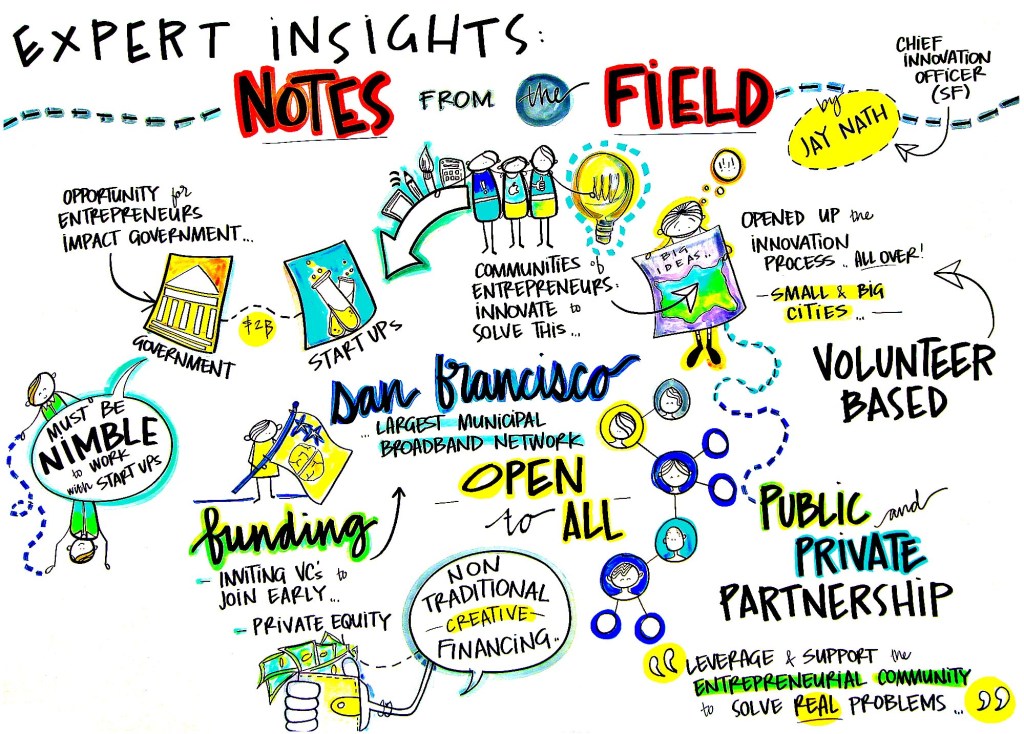 EXPERT INSIGHTS:
NOTES FROM the FIELD
by
JAY NATH
CHIEF
INNOVATION
OFFICER
(SF)
OPPORTUNITY for
ENTREPRENEURS
IMPACT GOVERNMENT...
GOVERNMENT
$2B
START UPS
COMMUNITIES of
ENTREPRENEURS:
INNOVATE to
SOLVE THIS...
BIG
IDEAS..
OPENED UP the
INNOVATION
PROCESS.. ALL OVER!
- SMALL & BIG
CITIES... -
VOLUNTEER
BASED
MUST BE
NIMBLE
to WORK
with START UPS
san francisco
... LARGEST MUNICIPAL
BROADBAND NETWORK
OPEN
to ALL
funding
- INVITING VC's to
JOIN EARLY...
- PRIVATE EQUITY
NON
TRADITIONAL
- CREATIVE -
FINANCING..
PUBLIC and
PRIVATE
PARTNERSHIP
“ LEVERAGE & SUPPORT the
ENTREPRENEURIAL COMMUNITY
to SOLVE REAL PROBLEMS... ”